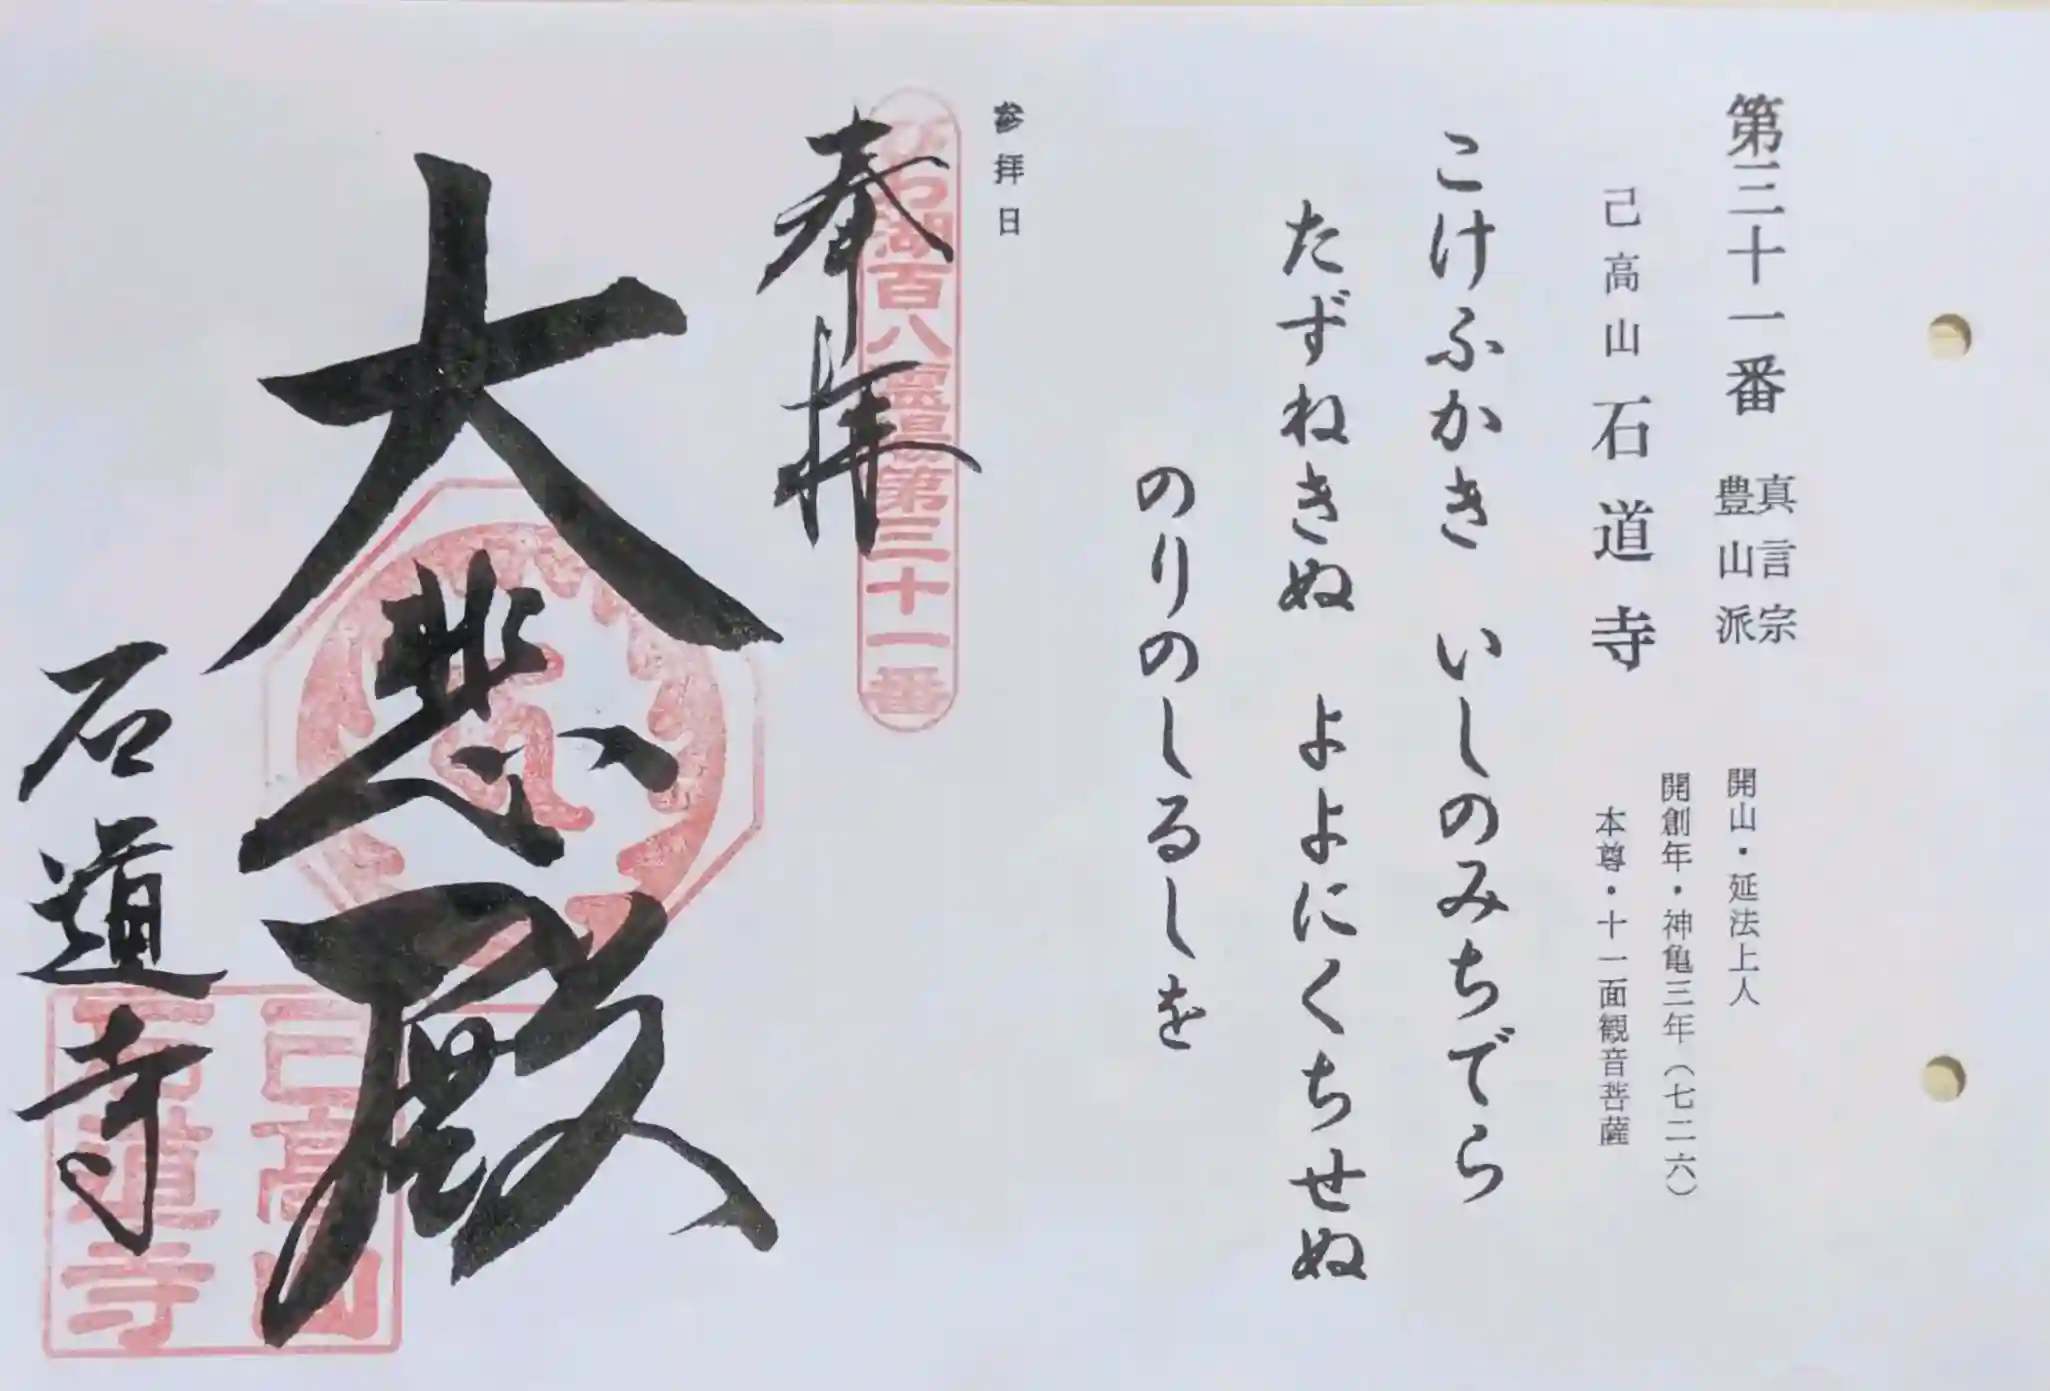 第三十一番
真言宗
豊山派
己高山 石道寺
開山・延法上人
開創年・神亀三年(七二六)
本尊・十一面観音菩薩
こけふかき いしのみちでら
たずねきぬ よよにくちせぬ
のりのしるしを
参拝日
奉拝
びわ湖百八霊場第三十一番
大悲殿
石道寺
己高山
石道寺